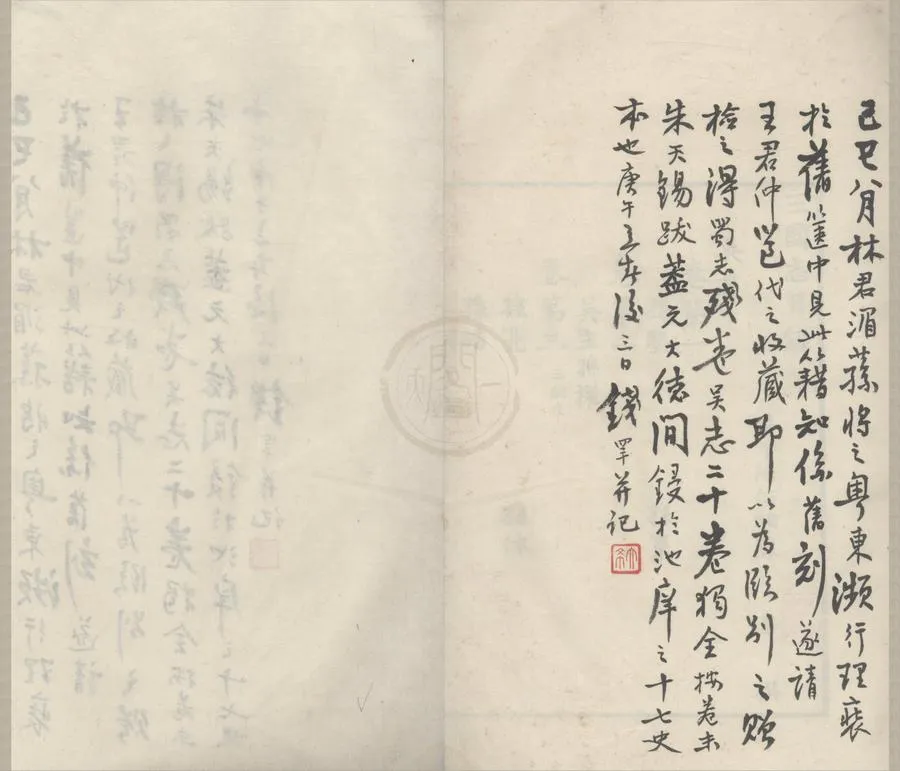 己巳八月林君湄蓀將之粤東瀕行理裝
於舊篋中見此籍知係舊刻遂請
王君仲邕代之收藏即以為臨別之贈
檢之得蜀志殘卷吳志二十卷獨全按卷末
朱天錫跋蓋元大德間鋟於池庠之十七史
本也庚午立春後三日錢罕并记